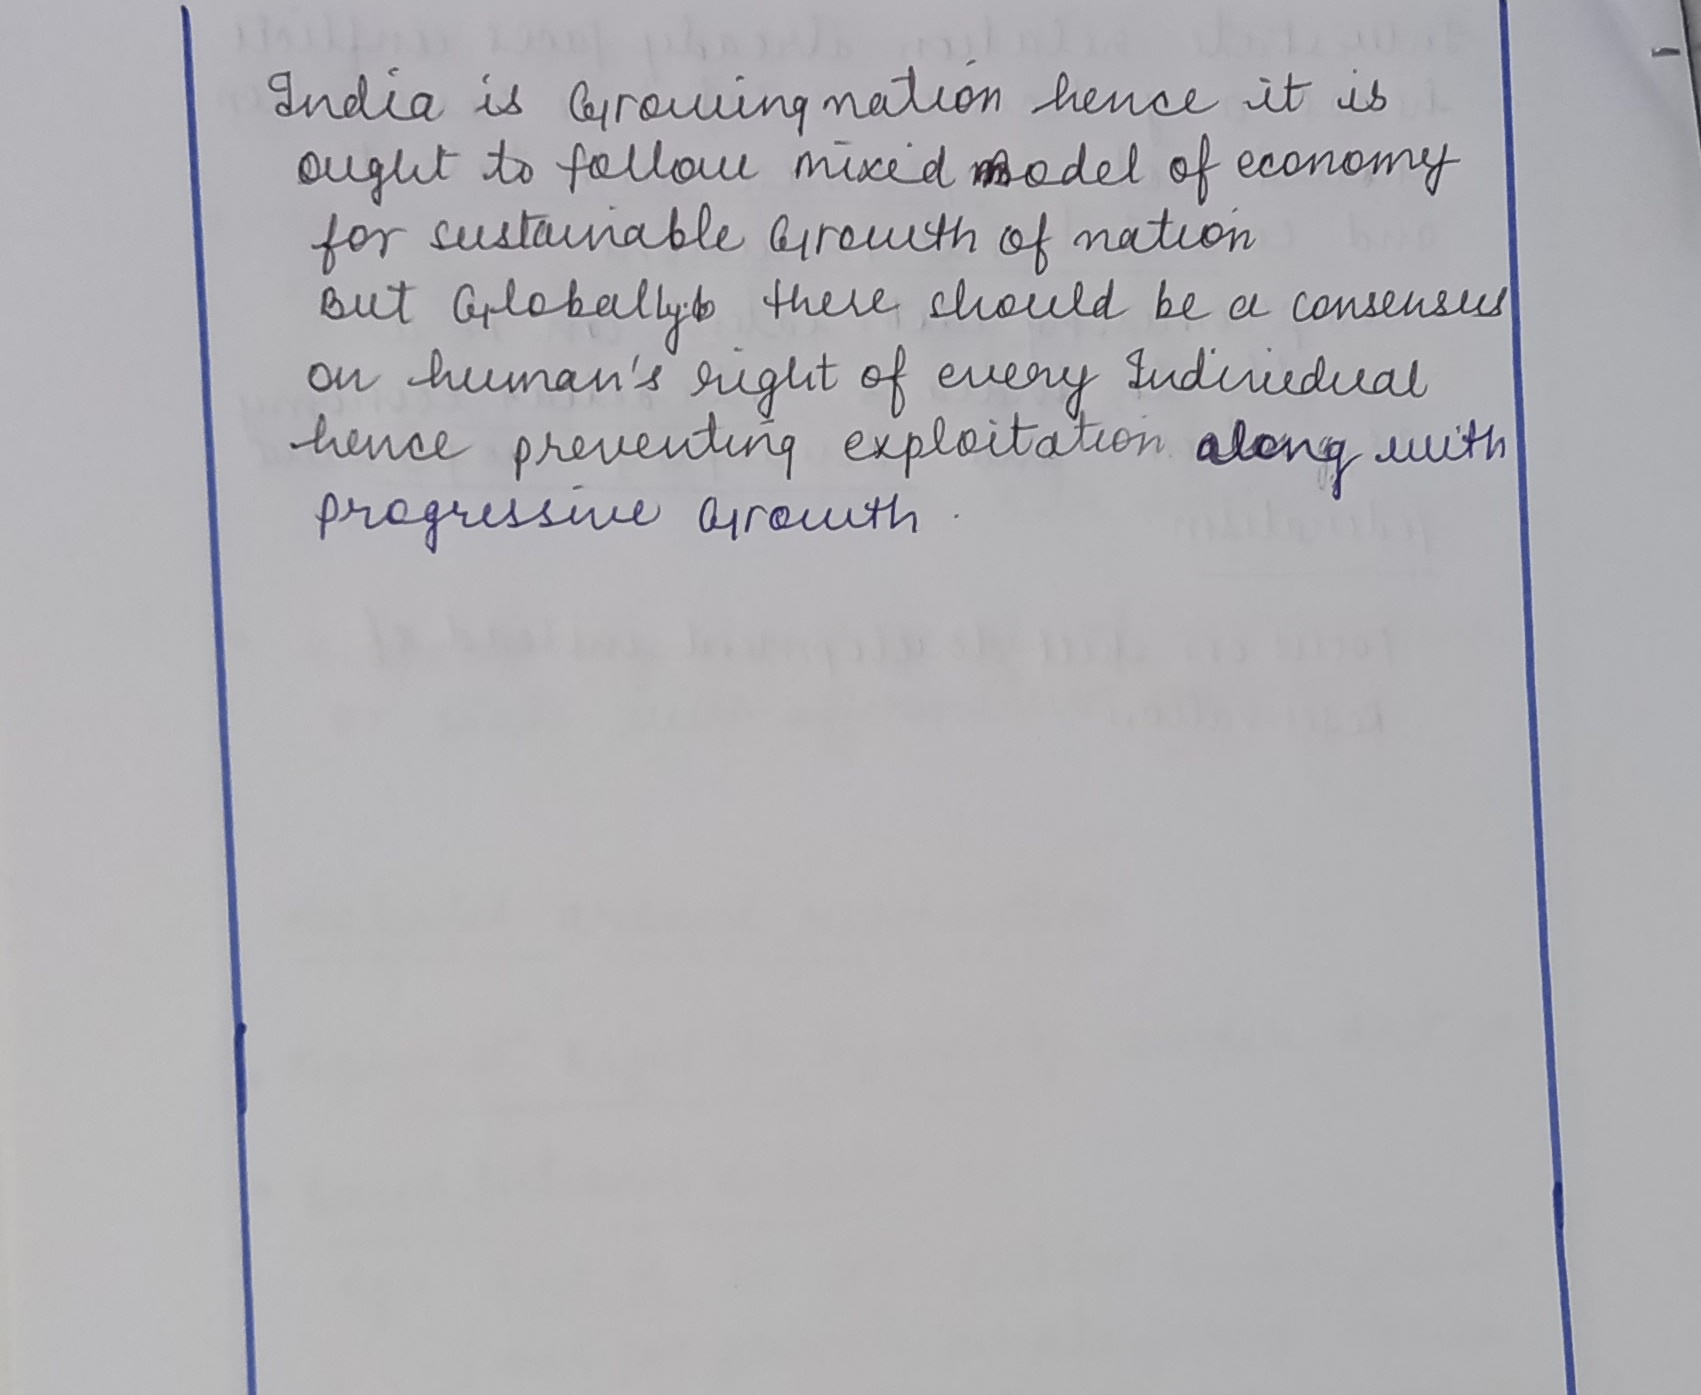 India is Growing nation hence it is
ought to follow mixed model of economy
for sustainable Growth of nation
But Globally there should be a consensus
on human's right of every Individual
hence preventing exploitation along with
progressive Growth.